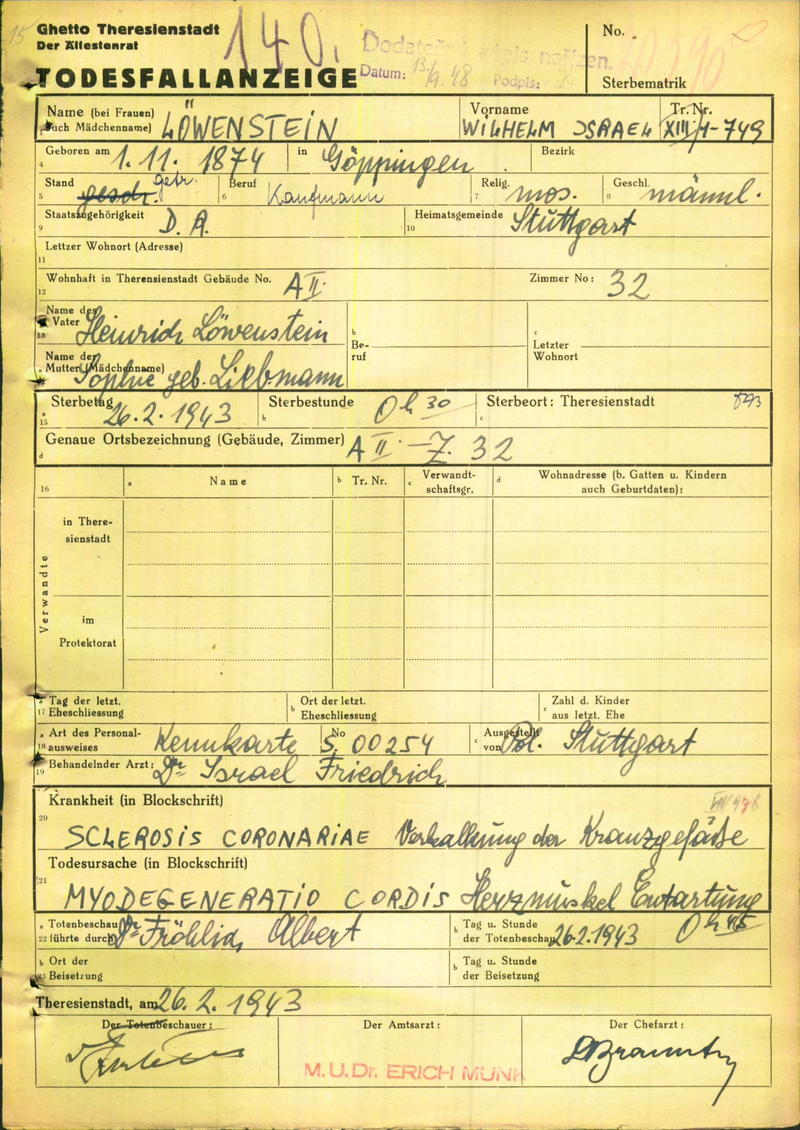 Ghetto Theresienstadt
Der Ältestenrat
140.
Datum: 13/9. 48 Podpis:
No.
TODESFALLANZEIGE
Sterbematrik
Name (bei Frauen auch Mädchenname) LÖWENSTEIN Vorname WILHELM ISRAEL Tr. Nr. XIII/1-749
4 Geboren am 1. 11. 1874 in Göppingen. Bezirk
5 Stand gesch. getr. 6 Beruf Kaufmann 7 Relig. mos. 8 Geschl. männl.
9 Staatszugehörigkeit D. A. 10 Heimatsgemeinde Stuttgart
11 Lettzer Wohnort (Adresse)
12 Wohnhaft in Therensienstadt Gebäude No. A II. Zimmer No: 32
13 Name des Vater Heinrich Löwenstein b Beruf c Letzter Wohnort
Name der Mutter (Mädchenname) Sophie geb. Liebmann
15 a Sterbetag 26.2.1943 b Sterbestunde 0 h 30 c Sterbeort: Theresienstadt
d Genaue Ortsbezeichnung (Gebäude, Zimmer) A II. – Z. 32
16 a Name b Tr. Nr. c Verwandtschaftsgr. d Wohnadresse (b. Gatten u. Kindern auch Geburtdaten):
Verwandte
in Theresienstadt
im Protektorat
17 a Tag der letzt. Eheschliessung b Ort der letzt. Eheschliessung c Zahl d. Kinder aus letzt. Ehe
18 a Art des Personalausweises Kennkarte b No S, 00254 c Ausgestellt von Pol. Stuttgart
19 Behandelnder Arzt: Dr Israel Friedrich
20 Krankheit (in Blockschrift)
SCLEROSIS CORONARIAE Verkalkung der Kranzgefäße
21 Todesursache (in Blockschrift)
MYODEGENERATIO CORDIS Herzmuskel Entartung
22 a Totenbeschau führte durch Dr Fröhlich Albert b Tag u. Stunde der Totenbeschau 26.2.1943 0 h 45
23 b Ort der Beisetzung b Tag u. Stunde der Beisetzung
Theresienstadt, am 26. 2. 1943
Der Totenbeschauer: Der Amtsarzt: Der Chefarzt:
M.U.Dr. ERICH MUNK